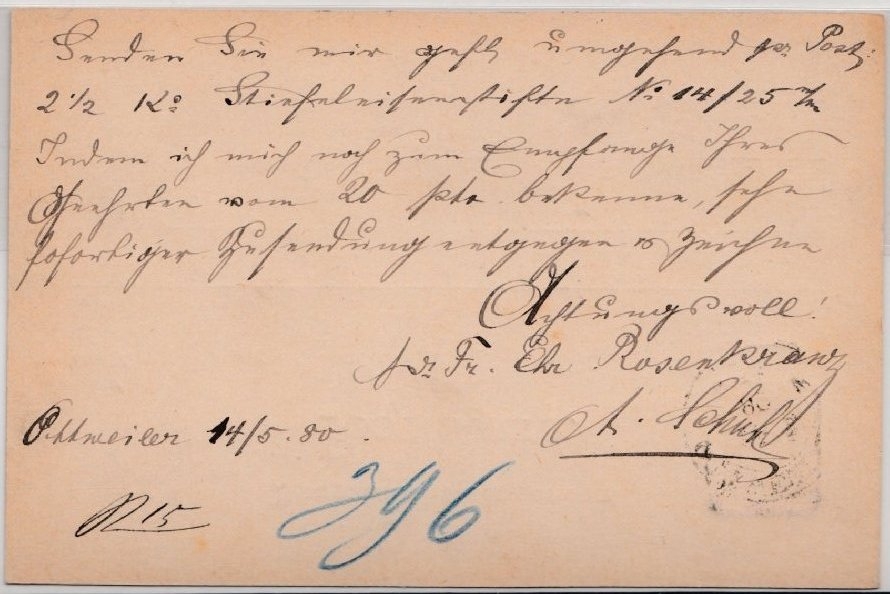 Senden Sie mir gefl. umgehend pr. Post:
2 1/2 Ko Stiefeleisenstifte No 14/25 m/m
Indem ich mich noch zum Empfange Ihres
Geehrten vom 20 pto. bekenne, sehe
sofortiger Zusendung entgegen & zeichne
Achtungsvoll!
pr. Fr. Chr. Rosenkranz
A. Schul
Ottweiler 14/5.80.
15
396